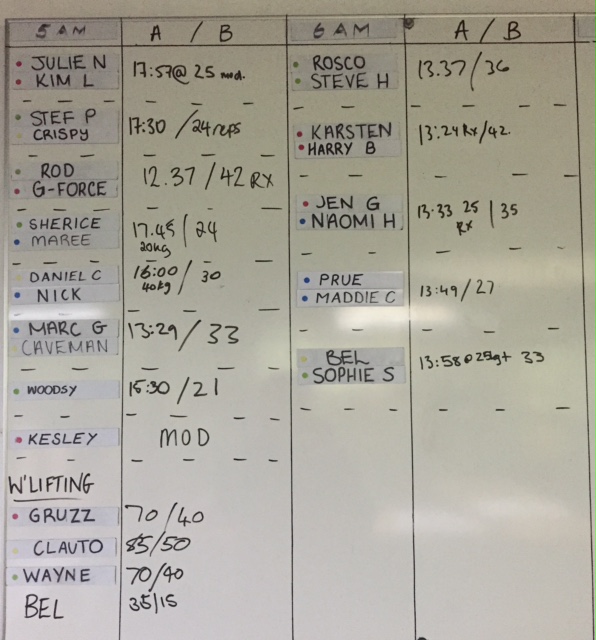 5 AM A / B 6 AM A / B
JULIE N
KIM L
17:57@ 25 mod.
STEF P
CRISPY
17:30 / 24 reps
ROD
G-FORCE
12.37 / 42 RX
SHERICE
MAREE
17.45 / 24
20kg
DANIEL C
NICK
16:00 / 30
40kg
MARC G
CAVEMAN
13:29 / 33
WOODSY
15:30 / 21
KESLEY
MOD
W'LIFTING
GRUZZ
70/40
CLAUTO
85/50
WAYNE
70/40
BEL
35/15
ROSCO
STEVE H
13.37/36
KARSTEN
HARRY B
13:24 Rx/42.
JEN G
NAOMI H
13.33 25 / 35
Rx
PRUE
MADDIE C
13:49/27
BEL
SOPHIE S
13:58@25 33